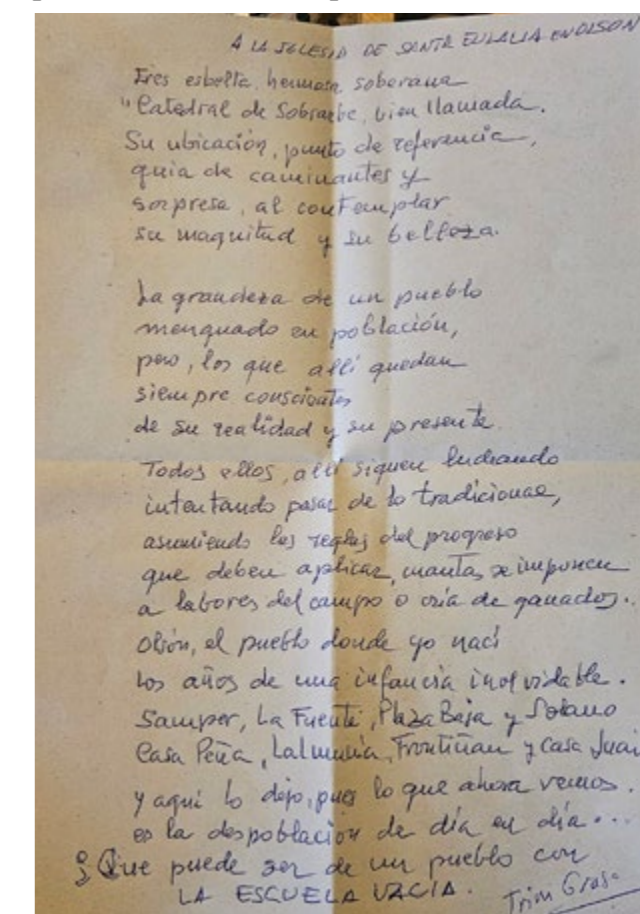 A LA IGLESIA DE SANTA EULALIA EN OLSON
Eres esbelta, hermosa soberana
"Catedral de Sobrarbe, bien llamada.
Su ubicación, punto de referencia,
guia de caminantes y
sorpresa, al contemplar
su magnitud y su belleza.
La grandeza de un pueblo
menguado en población,
pero, los que allí quedan
siempre conscientes
de su realidad y su presente.
Todos ellos, allí siguen luchando
intentando pasar de lo tradicional,
asumiendo las reglas del progreso
que deben aplicar, cuantas se imponen
a labores del campo o cria de ganados..
Olsón, el pueblo donde yo nací
los años de una infancia inolvidable.
Samper, La Fuente, Plaza Baja y Solano
Casa Peña, Lalmunia, Frontiñan y Casa Juan
y aqui lo dejo, pues lo que ahora vemos.
es la despoblación de día en día...
¿Que puede ser de un pueblo con
LA ESCUELA VACIA.
Trini Grasa